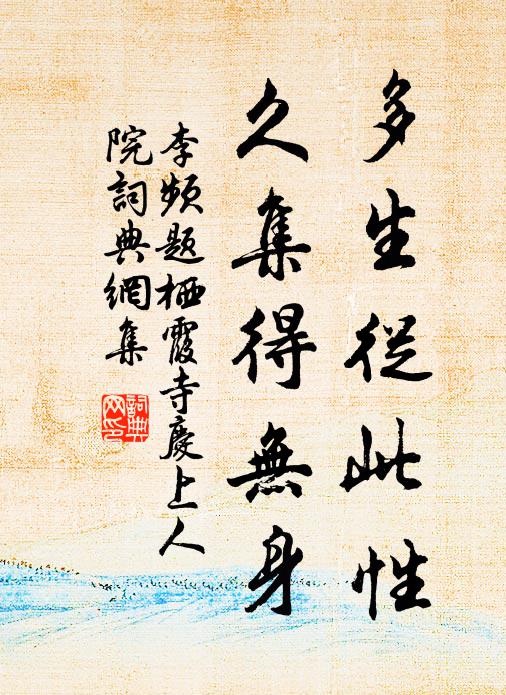 多生從此性
久集得無身
李頻題栖霞寺慶上人
院詞典網集
詞典
网印